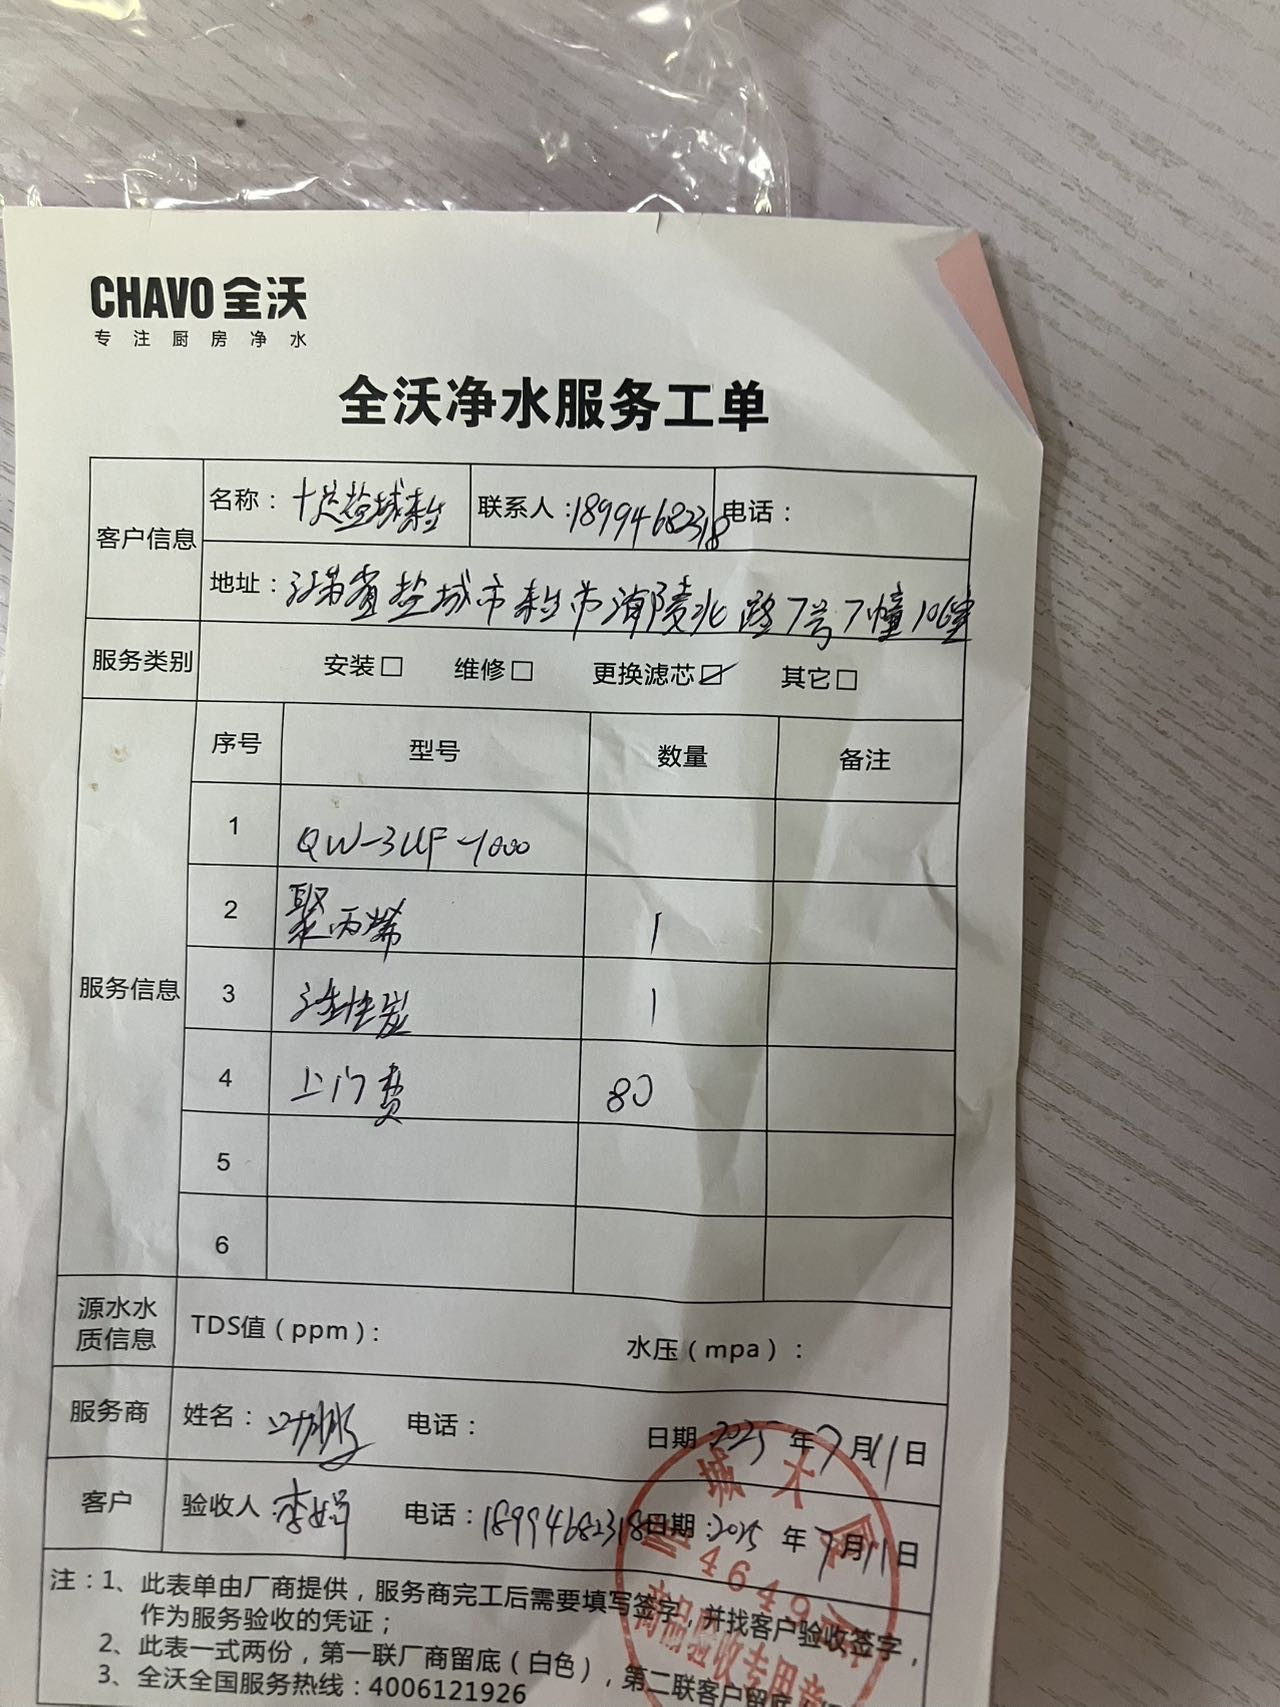 CHAVO 全沃
专注厨房净水
全沃净水服务工单
客户信息
名称：十足盐城东台 联系人：18994682318 电话：
地址：江苏省盐城市东台市海陵北路7号7幢106室
服务类别 安装□ 维修□ 更换滤芯☑ 其它□
服务信息
序号 型号 数量 备注
1 QW-3UF-1000
2 聚丙烯 1
3 活性炭 1
4 上门费 80
5
6
源水水质信息 TDS值（ppm）： 水压（mpa）：
服务商 姓名： 电话： 日期 2025 年 7 月 11 日
客户 验收人：李娟 电话：18994682318 日期：2025 年 7 月 11 日
注：1、此表单由厂商提供，服务商完工后需要填写签字，并找客户验收签字，
作为服务验收的凭证；
2、此表一式两份，第一联厂商留底（白色），第二联客户留底
3、全沃全国服务热线：4006121926
4649
商品验收专用章